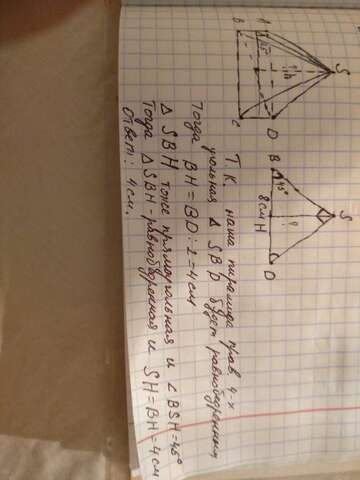 S
A
B
C
D
45°
h
?
S
B
45°
8 см
H
?
D
Т.К. наша пирамида прав. 4-х
угольная Δ SBD будет равнобедренным
Тогда BH = BD : 2 = 4 см
Δ SBH тоже прямоугольная и ∠BSH = 45°
Тогда Δ SBH - равнобедренная и SH = BH = 4 см
Ответ: 4 см.